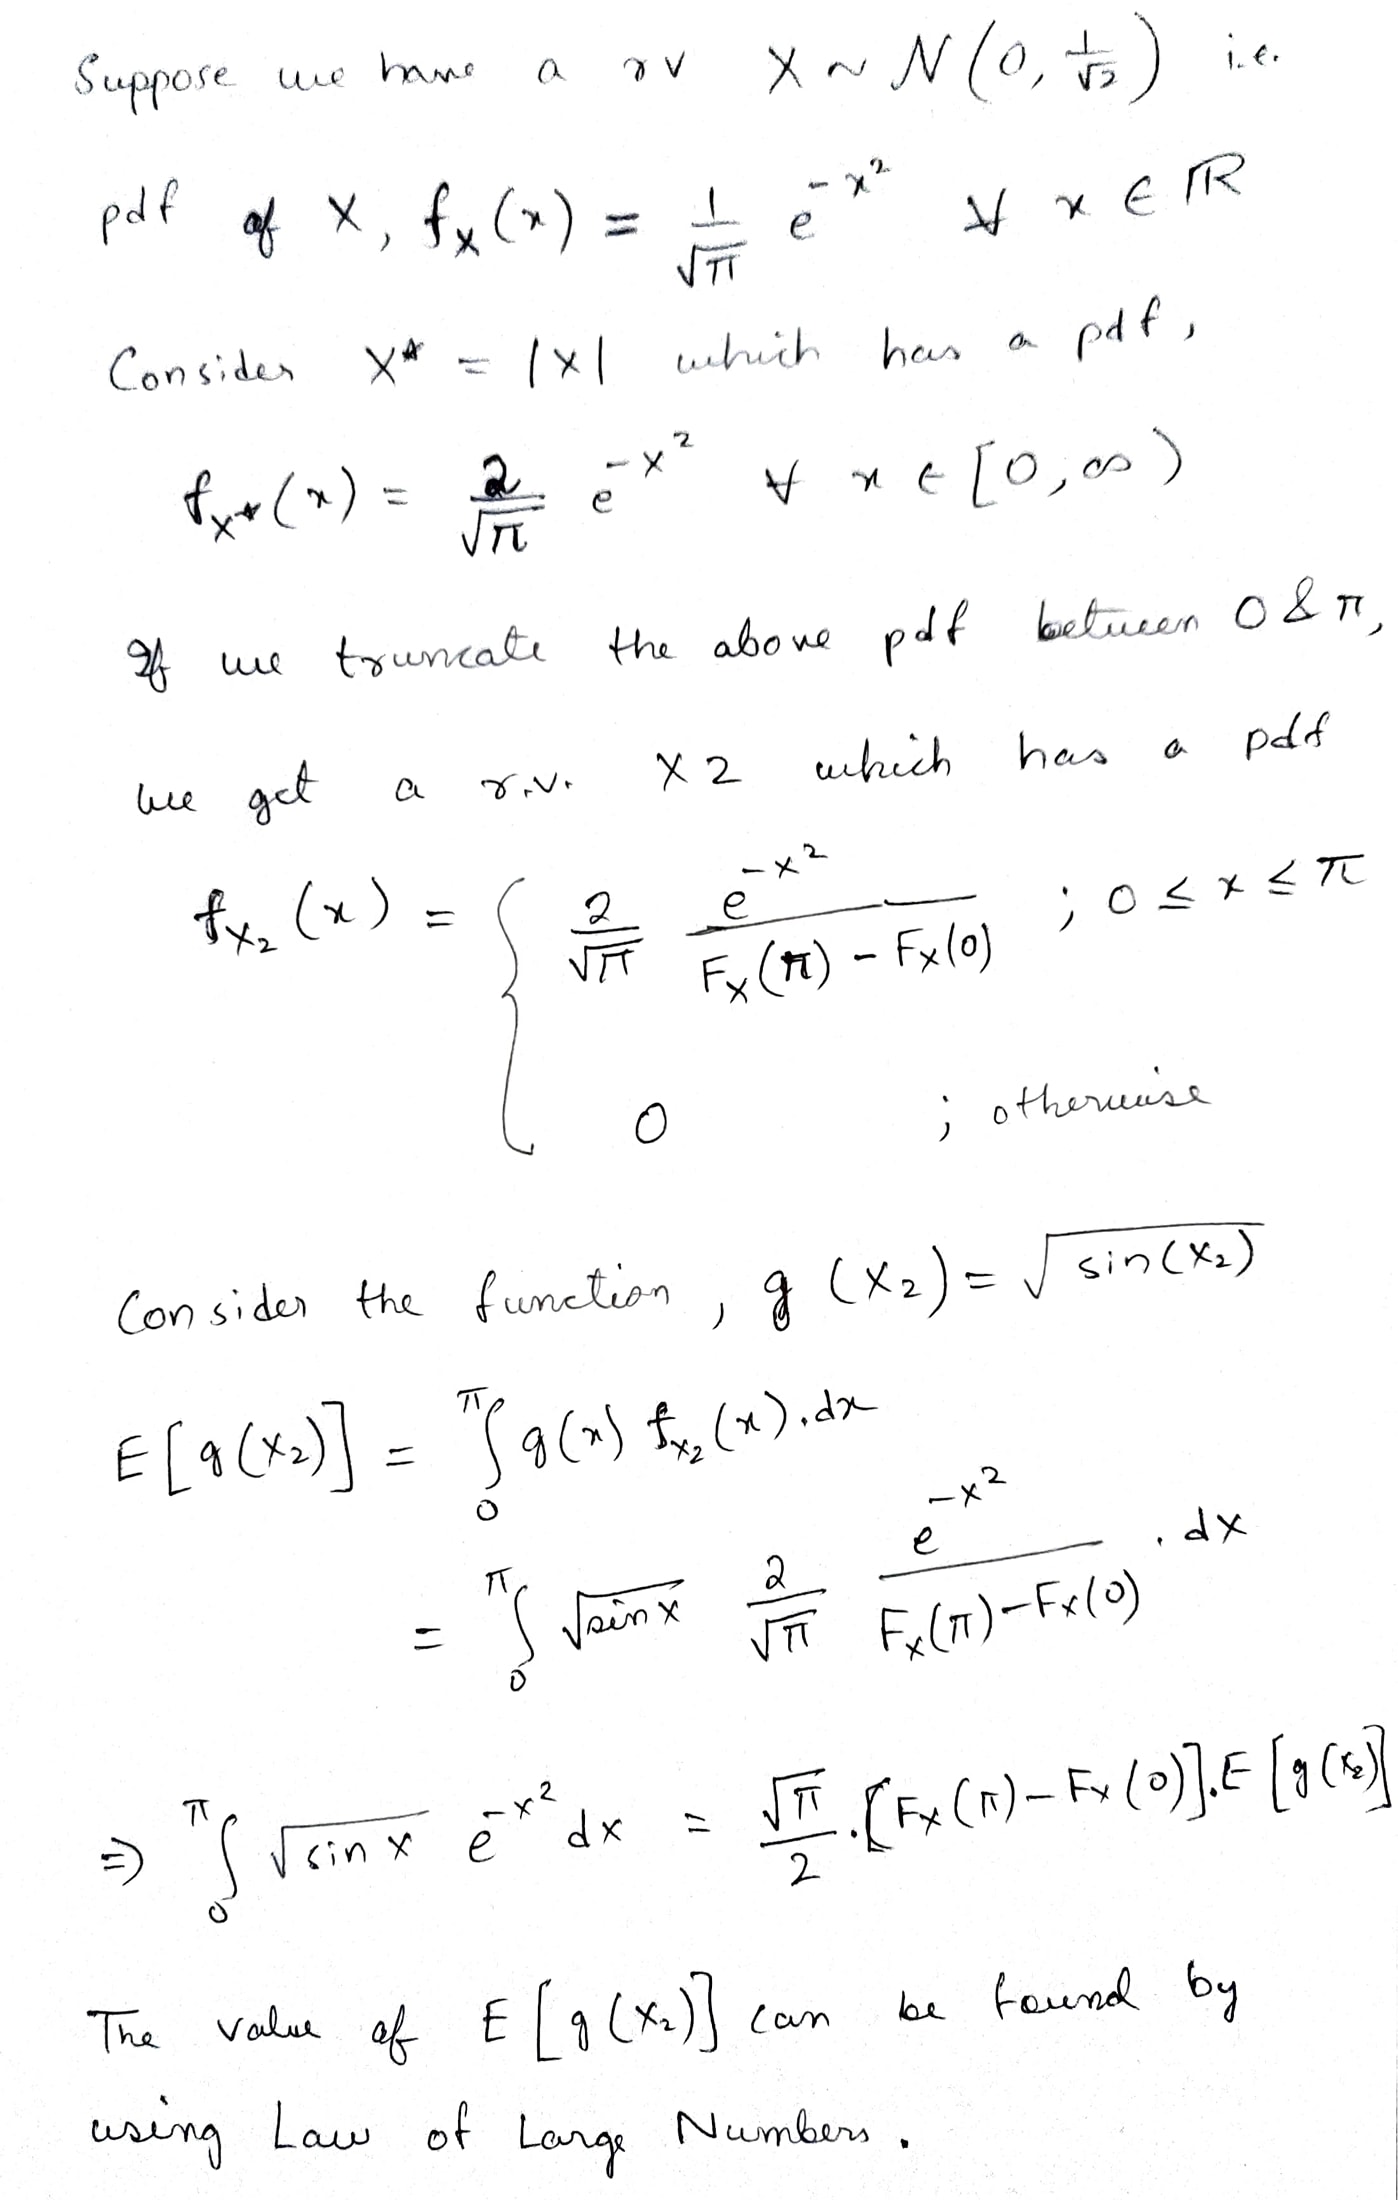 Suppose we have a rv X ~ N(0, 1/√2) i.e.
pdf of X, f_X(x) = 1/√π e^{-x²} ∀ x ∈ ℝ
Consider X* = |X| which has a pdf,
f_{X*}(x) = 2/√π e^{-x²} ∀ x ∈ [0, ∞)
If we truncate the above pdf between 0 & π,
we get a r.v. X2 which has a pdf
f_{X₂}(x) = { 2/√π e^{-x²}/(F_X(π) - F_X(0)) ; 0 ≤ x ≤ π
0 ; otherwise
Consider the function, g(X₂) = √sin(X₂)
E[g(X₂)] = ∫₀^π g(x) f_{X₂}(x).dx
= ∫₀^π √sin x 2/√π e^{-x²}/(F_X(π) - F_X(0)) . dx
⇒ ∫₀^π √sin x e^{-x²} dx = √π/2 . [F_X(π) - F_X(0)].E[g(X₂)]
The value of E[g(X₂)] can be found by
using Law of Large Numbers.